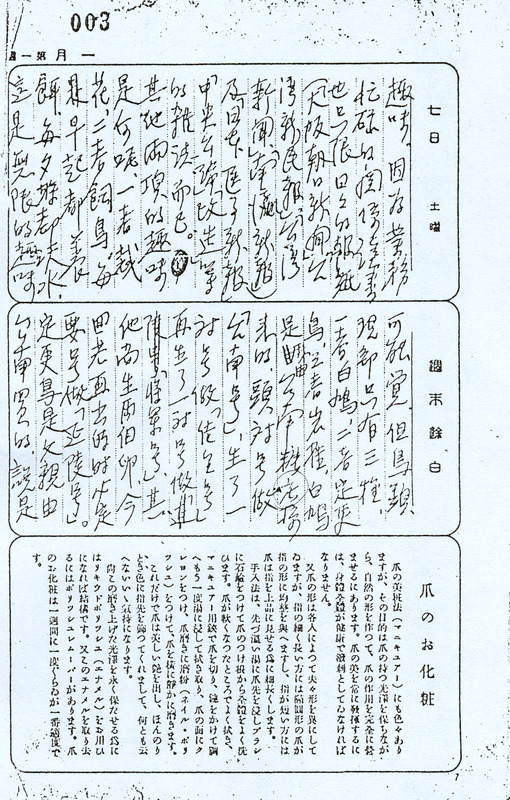 003
一月第一
七日 土曜
趣味，因為業務
忙碌的關係
也只限日々的報紙
(大阪朝日新聞、台
湾新民報、台湾
新聞、台南新報)
及日本医事新報
中央公論、改造等
的雜誌而已。
其他兩項的趣味
是何呢、一者栽
花、二者飼鳥、每
早起都
餌，每夕都水，
這是無限的趣味
週末餘白
可能覺，但鳥類
現都只有三種，
一者白鳩、二者定更
鳥、三者岩 白鳩
是由台南
來的，頭対号做
「台南号」生了一
対号做「佐生号」
再生了一対号做
「将軍号」其
他尚生兩個卵，今
再去的時定
要号做「延陵号」。
定更鳥是父親由
台南買的，說是
爪のお化粧
爪の美粧法（マニキユアー）にも色々あり
ますが、その目的は爪の持つ光澤を保ちなが
ら、自然の形を作つて、爪の作用を完全に營
ませるにあります。爪の美を常に發揮するに
は、身體全體が健康で潑剌としてゐなければ
なりません。
又爪の形は各人によつて夫々形を異にして
ゐますが、指の細く長い方には橢圓形の爪が
指の形に均整を與へますし、指が短い方には
爪は指を上品に見せる爲に細長くします。
手入法は、先づ溫い湯に爪先を浸しブラシ
に石鹼をつけて爪のつけ根から全體をよく洗
ひます。爪が軟くなつたところでよく拭き、
マニキユアー用鋏で爪を切り、鑢をかけて調
へもう一度湯に浸して拭き取り、爪の面にク
レヨンをつけ、爪磨きに磨粉（ネイル・ポリ
フシユ）をつけて、爪を橫に靜かに磨きます。
これだけで爪は美しい艷を出し、ほんのり
とき色に指先を飾つてくれまして、何とも云
へないいゝ氣持になります。
尙この磨き上げた光澤を永く保たせる爲に
はリキウドポリツシユ（エナメル）をお用ひ
になれば結構です。又このエナメルを取り去
るにはポリツシユリムーバーがあります。爪
のお化粧は一週間に一度ぐらゐが一番適度で
す。